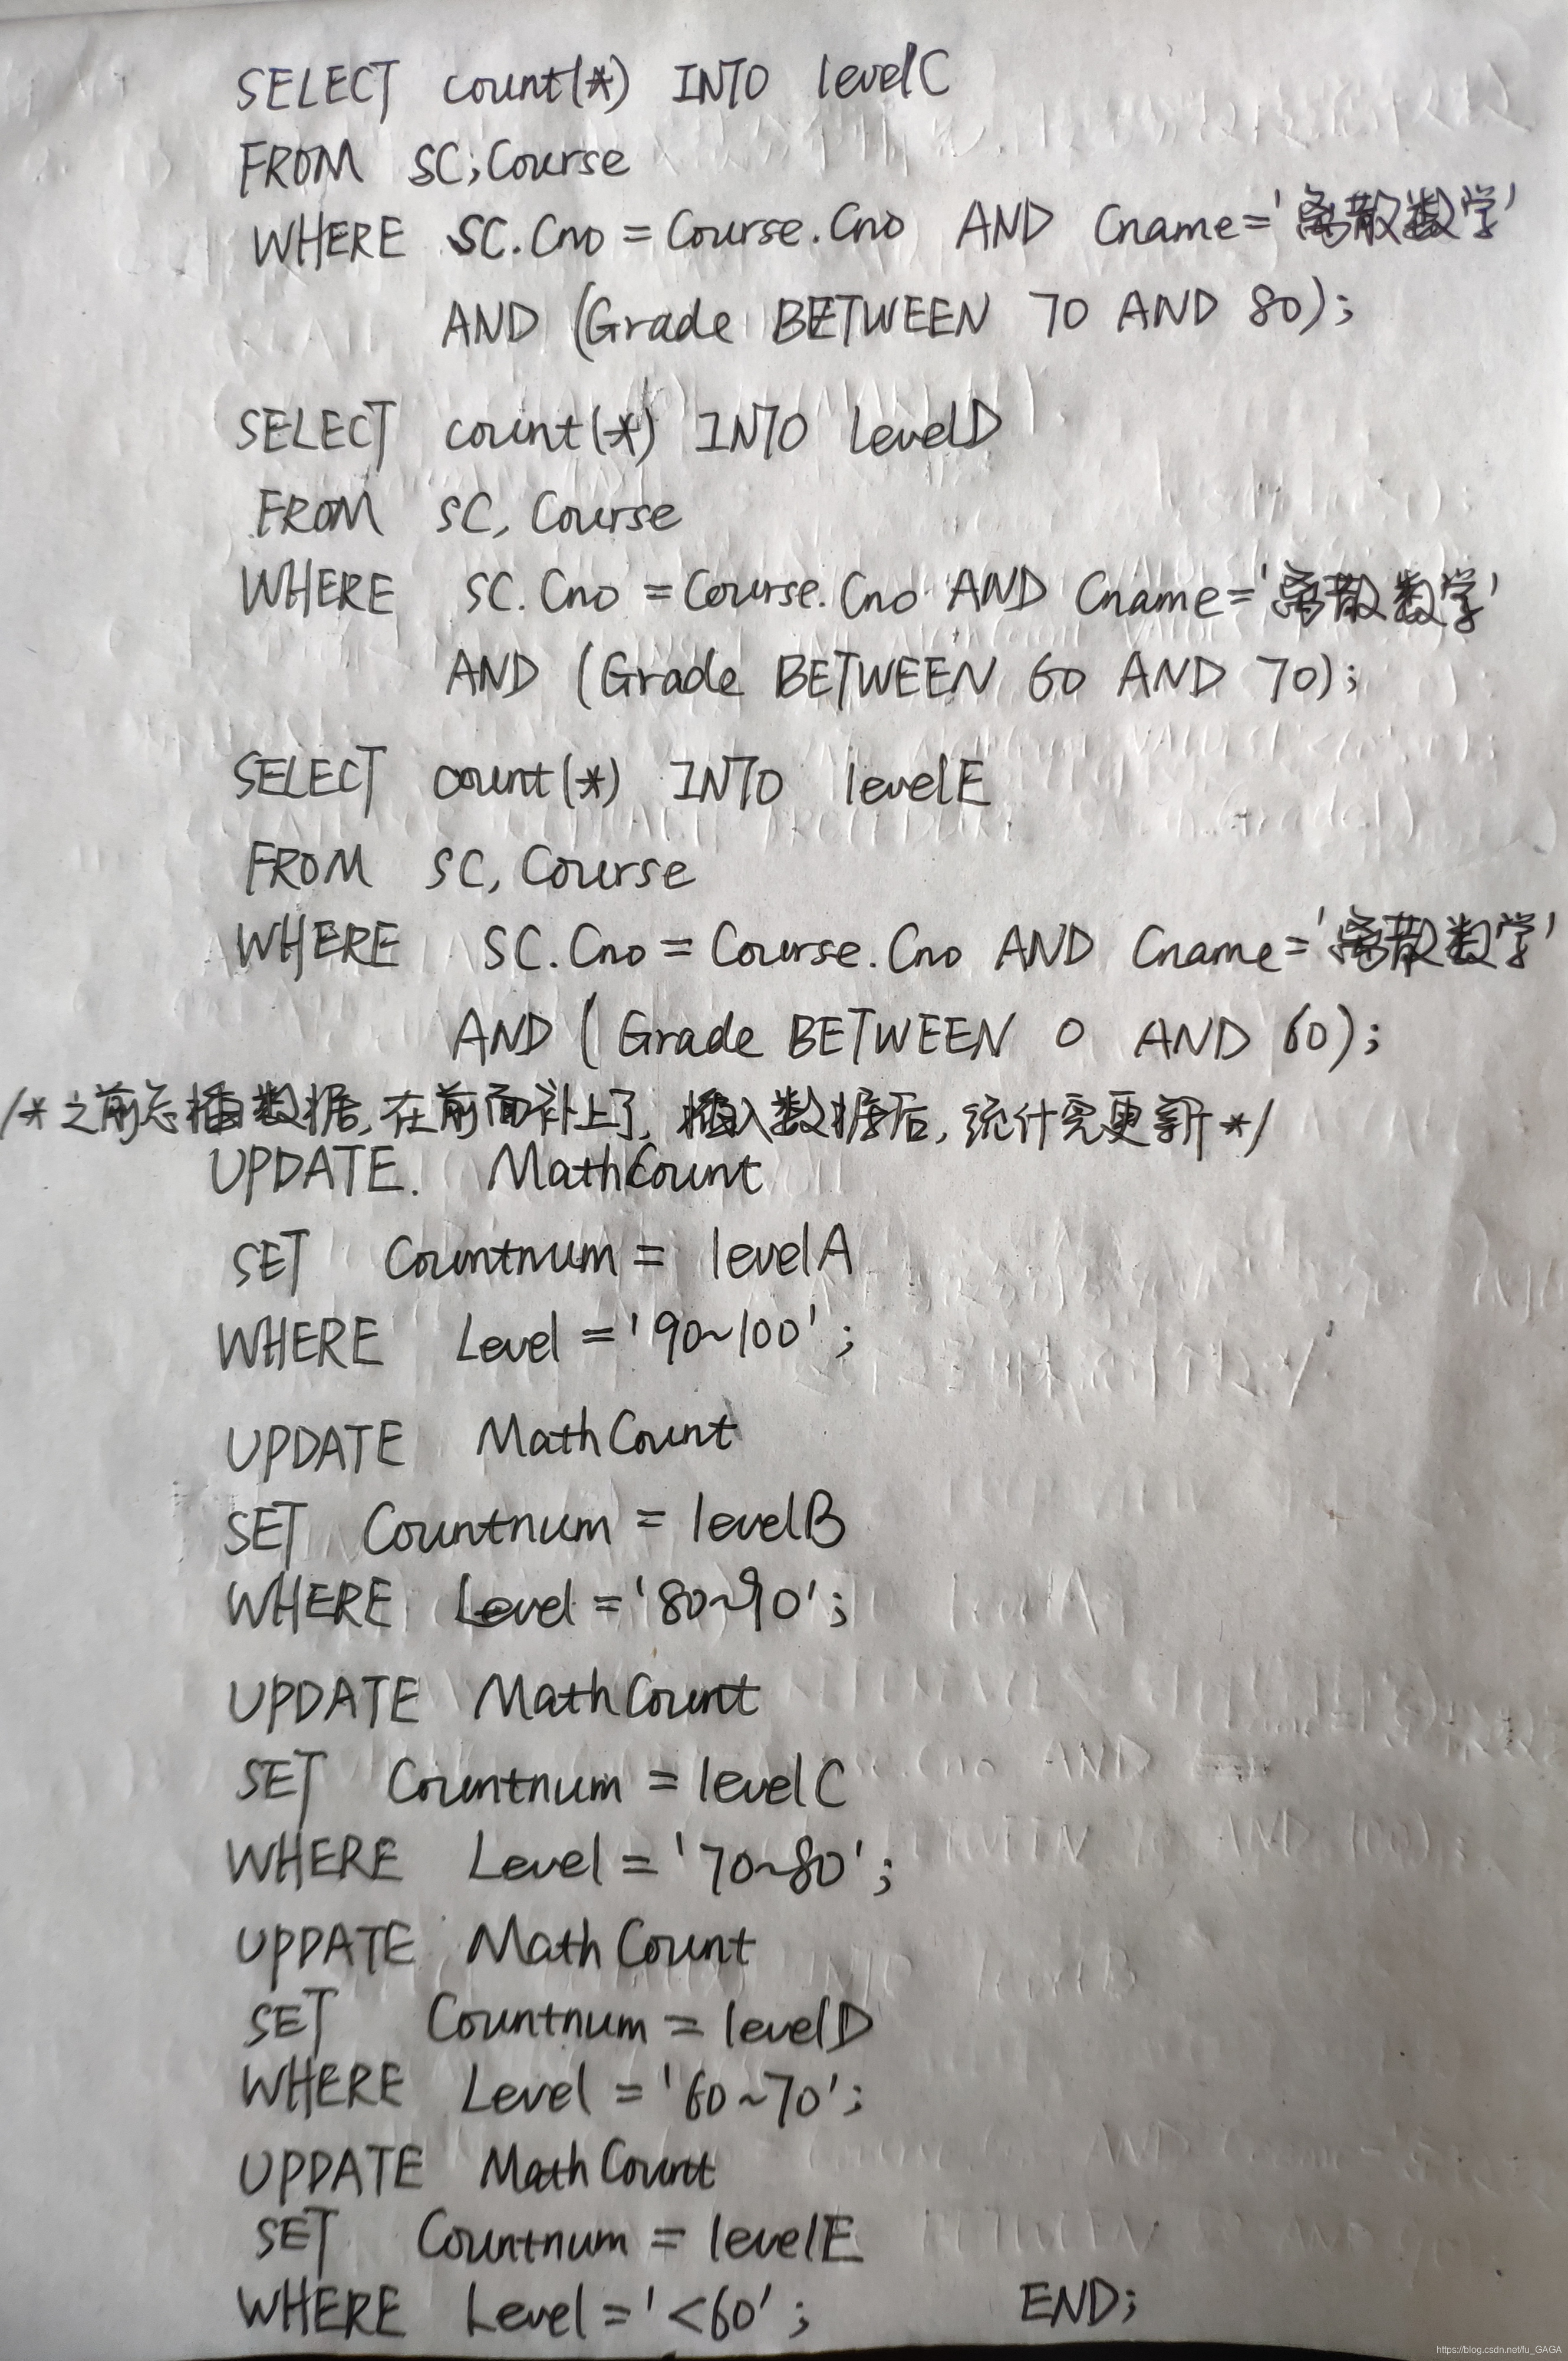 SELECT count(*) INTO levelC
FROM SC;Course
WHERE SC.Cno = Course.Cno AND Cname='离散数学'
AND (Grade BETWEEN 70 AND 80);
SELECT count(*) INTO levelD
FROM SC, Course
WHERE SC.Cno = Course.Cno AND Cname='离散数学'
AND (Grade BETWEEN 60 AND 70);
SELECT count(*) INTO levelE
FROM SC, Course
WHERE SC.Cno = Course.Cno AND Cname='离散数学'
AND (Grade BETWEEN 0 AND 60);
/*之前忘插数据,在前面补上了,插入数据后,统计需更新*/
UPDATE. MathCount
SET Countnum = levelA
WHERE Level ='90~100';
UPDATE MathCount
SET Countnum = levelB
WHERE Level ='80~90';
UPDATE MathCount
SET Countnum = levelC
WHERE Level = '70~80';
UPDATE MathCount
SET Countnum = levelD
WHERE Level = '60~70';
UPDATE MathCount
SET Countnum = levelE
WHERE Level = '<60'; END;
https://blog.csdn.net/fu_GAGA